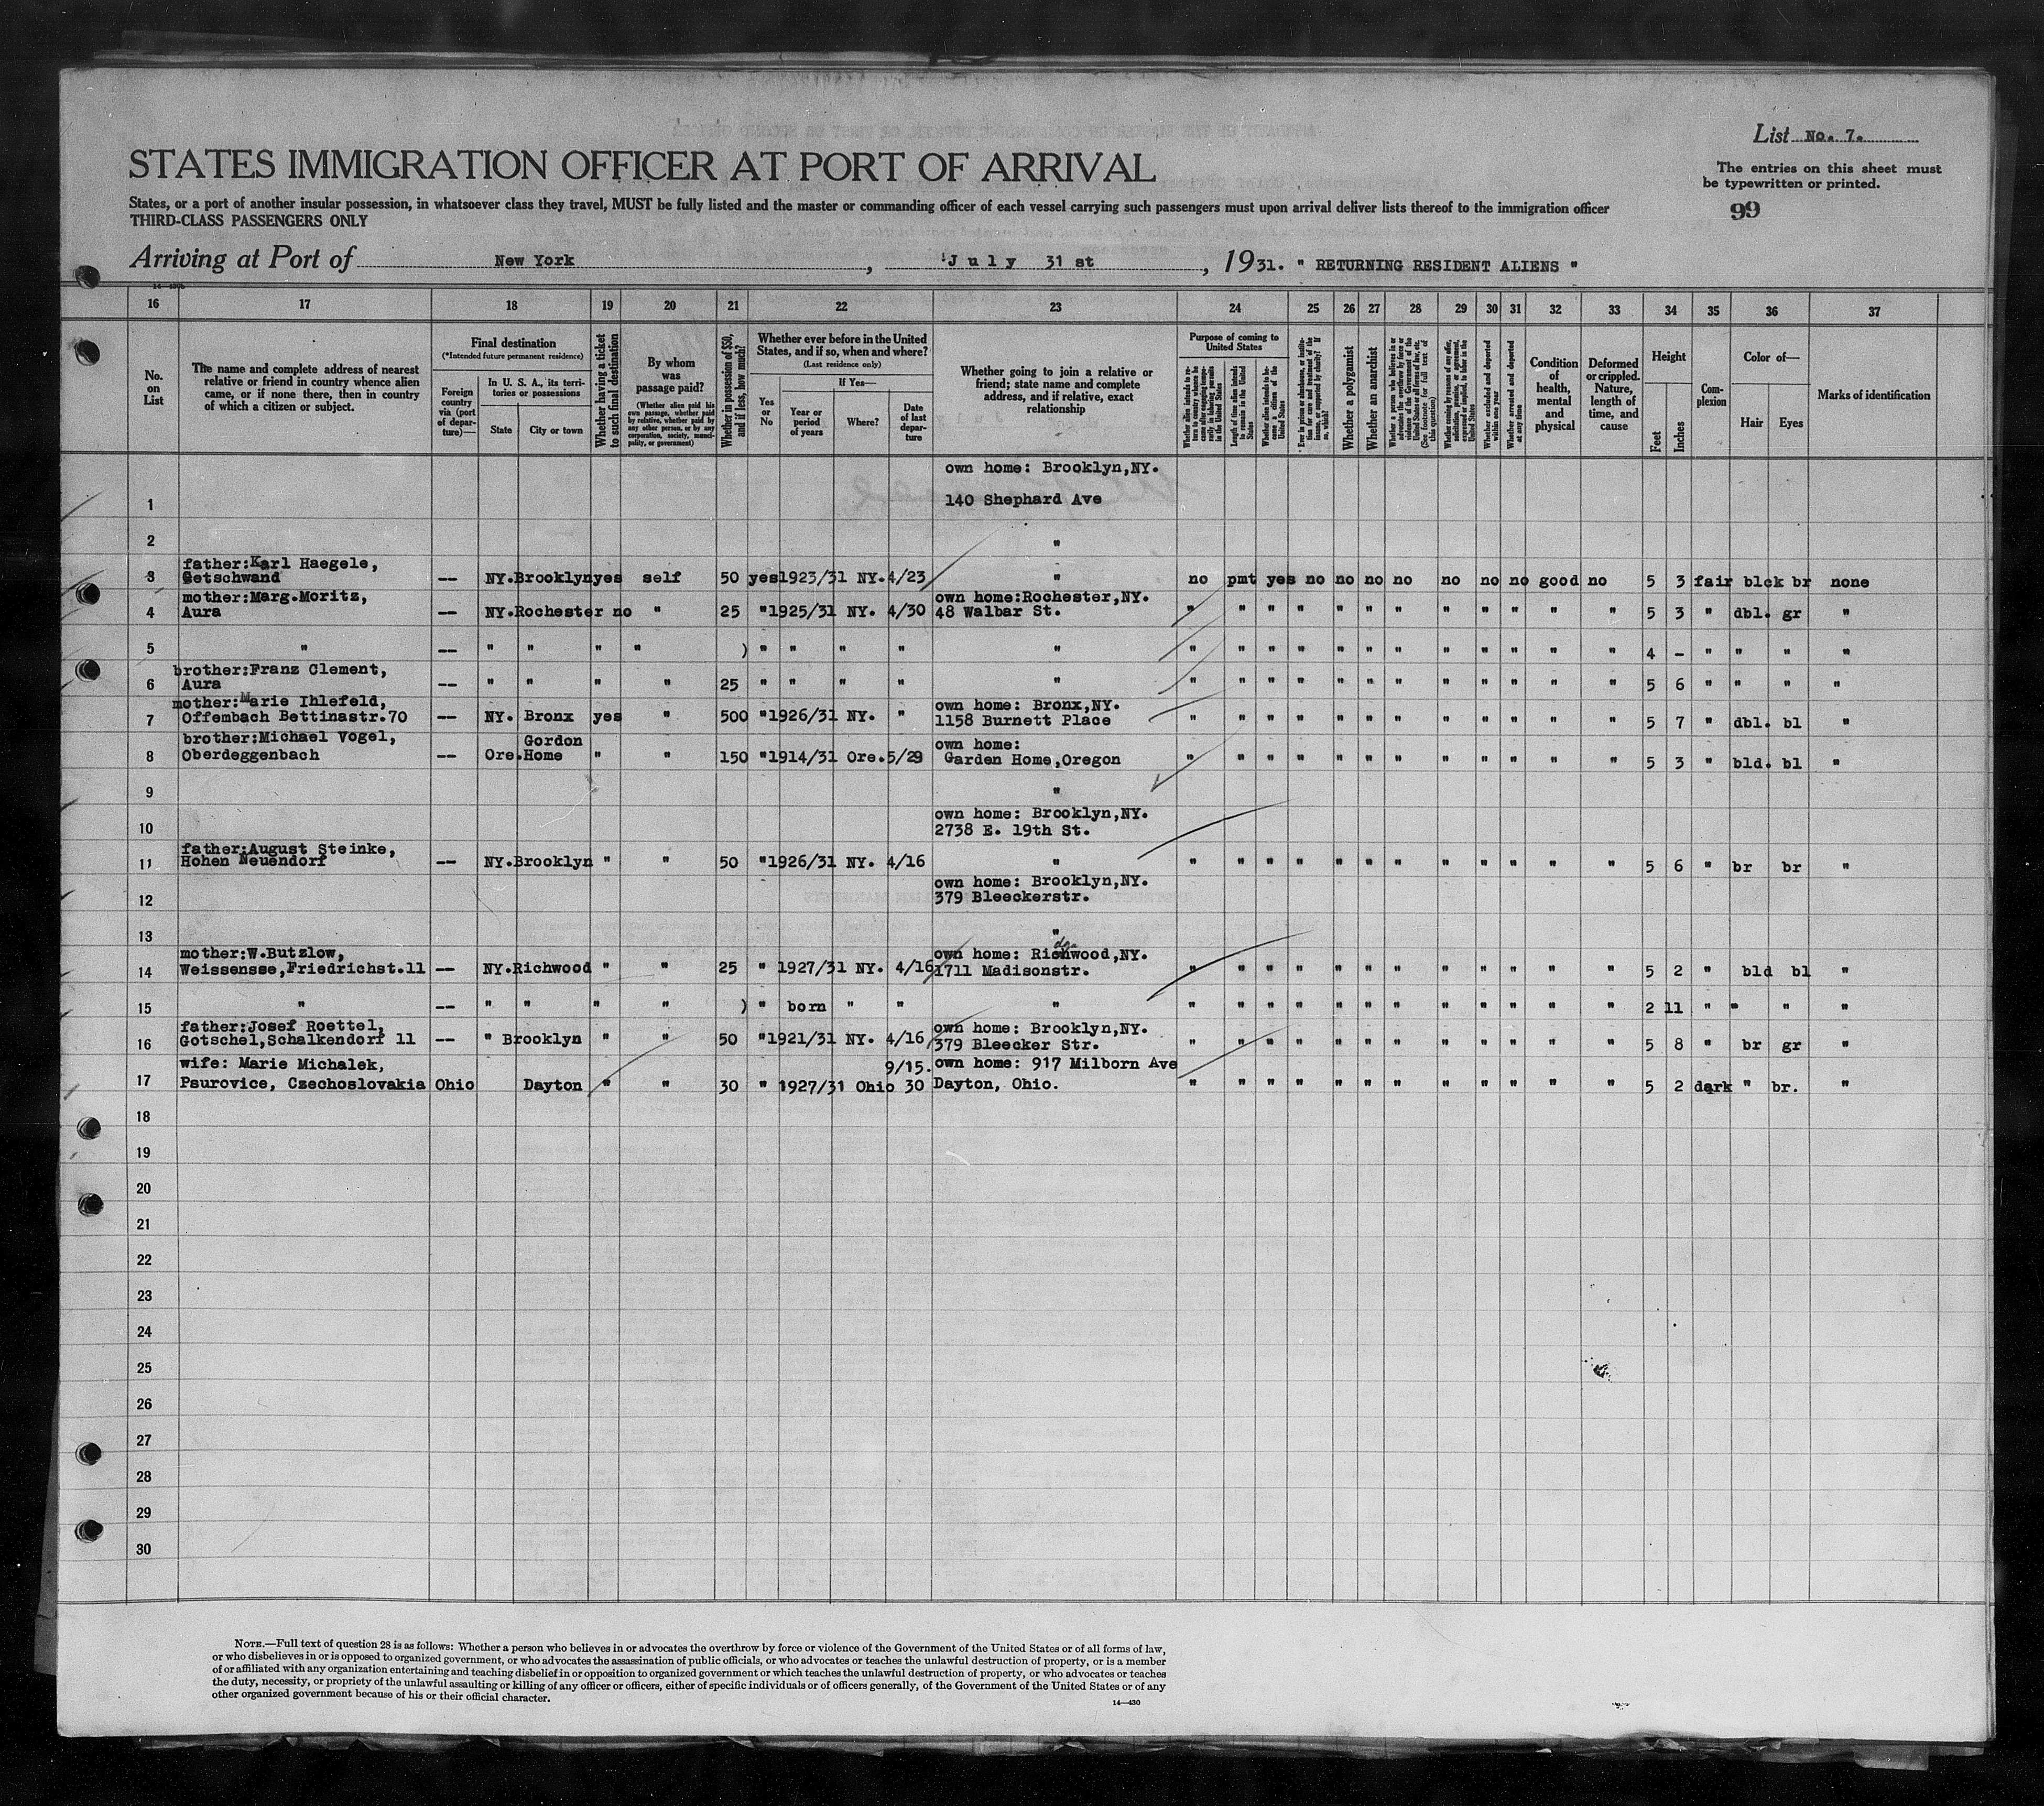 List No. 7.
STATES IMMIGRATION OFFICER AT PORT OF ARRIVAL
The entries on this sheet must
be typewritten or printed.
States, or a port of another insular possession, in whatsoever class they travel, MUST be fully listed and the master or commanding officer of each vessel carrying such passengers must upon arrival deliver lists thereof to the immigration officer
THIRD-CLASS PASSENGERS ONLY
99
Arriving at Port of New York, July 31st, 1931. " RETURNING RESIDENT ALIENS "
16 17 18 19 20 21 22 23 24 25 26 27 28 29 30 31 32 33 34 35 36 37
No. on List
The name and complete address of nearest relative or friend in country whence alien came, or if none there, then in country of which a citizen or subject.
Final destination
(*Intended future permanent residence)
Foreign country via (port of departure)—
In U. S. A., its territories or possessions
State
City or town
Whether having a ticket to such final destination
By whom was passage paid?
(Whether alien paid his own passage, whether paid by relative, whether paid by any other person, or by any corporation, society, municipality, or government)
Whether in possession of $50, and if less, how much?
Whether ever before in the United States, and if so, when and where?
(Last residence only)
Yes or No
If Yes—
Year or period of years
Where?
Date of last departure
Whether going to join a relative or friend; state name and complete address, and if relative, exact relationship
Purpose of coming to United States
Length of time alien intends to remain in the United States
Whether alien intends to become a citizen of the United States
Whether a polygamist
Whether an anarchist
Whether excluded and deported within one year
Whether arrested and deported at any time
Condition of health, mental and physical
Deformed or crippled. Nature, length of time, and cause
Height
Feet
Inches
Complexion
Color of—
Hair
Eyes
Marks of identification
own home: Brooklyn,NY.
1 140 Shephard Ave
2 "
father:Karl Haegele,
3 Getschwand -- NY. Brooklyn yes self 50 yes 1923/31 NY. 4/23 " no pmt yes no no no no no no no good no 5 3 fair blck br none
mother:Marg.Moritz, own home:Rochester,NY.
4 Aura -- NY. Rochester no " 25 " 1925/31 NY. 4/30 48 Walbar St. " " " " " " " " " " " " 5 3 " dbl. gr "
5 " -- " " " " ) " " " " " " " " " " " " " " " " " 4 - " " " "
brother:Franz Clement,
6 Aura -- " " " " 25 " " " " " " " " " " " " " " " " " 5 6 " " " "
mother:Marie Ihlefeld, own home: Bronx,NY.
7 Offembach Bettinastr.70 -- NY. Bronx yes " 500 " 1926/31 NY. " 1158 Burnett Place " " " " " " " " " " " " 5 7 " dbl. bl "
brother:Michael Vogel, Gordon own home:
8 Oberdeggenbach -- Ore. Home " " 150 " 1914/31 Ore. 5/29 Garden Home,Oregon " " " " " " " " " " " " 5 3 " bld. bl "
9 "
own home: Brooklyn,NY.
10 2738 E. 19th St.
father:August Steinke,
11 Hohen Neuendorf -- NY. Brooklyn " " 50 " 1926/31 NY. 4/16 " " " " " " " " " " " " " 5 6 " br br "
own home: Brooklyn,NY.
12 379 Bleeckerstr.
13 "
mother:W.Butzlow, own home: Richwood,NY.
14 Weissensse,Friedrichst.11 -- NY. Richwood " " 25 " 1927/31 NY. 4/16 1711 Madisonstr. " " " " " " " " " " " " 5 2 " bld bl "
15 " -- " " " " ) " born " " " " " " " " " " " " " " " 2 11 " " " "
father:Josef Roettel, own home: Brooklyn,NY.
16 Gotschel,Schalkendorf 11 -- " Brooklyn " " 50 " 1921/31 NY. 4/16 379 Bleecker Str. " " " " " " " " " " " " 5 8 " br gr "
wife: Marie Michalek, 9/15. own home: 917 Milborn Ave
17 Psurovice, Czechoslovakia Ohio Dayton " " 30 " 1927/31 Ohio 30 Dayton, Ohio. " " " " " " " " " " " " 5 2 dark " br. "
18
19
20
21
22
23
24
25
26
27
28
29
30
NOTE.—Full text of question 28 is as follows: Whether a person who believes in or advocates the overthrow by force or violence of the Government of the United States or of all forms of law,
or who disbelieves in or is opposed to organized government, or who advocates the assassination of public officials, or who advocates or teaches the unlawful destruction of property, or is a member
of or affiliated with any organization entertaining and teaching disbelief in or opposition to organized government or which teaches the unlawful destruction of property, or who advocates or teaches
the duty, necessity, or propriety of the unlawful assaulting or killing of any officer or officers, either of specific individuals or of officers generally, of the Government of the United States or of any
other organized government because of his or their official character.
14—430